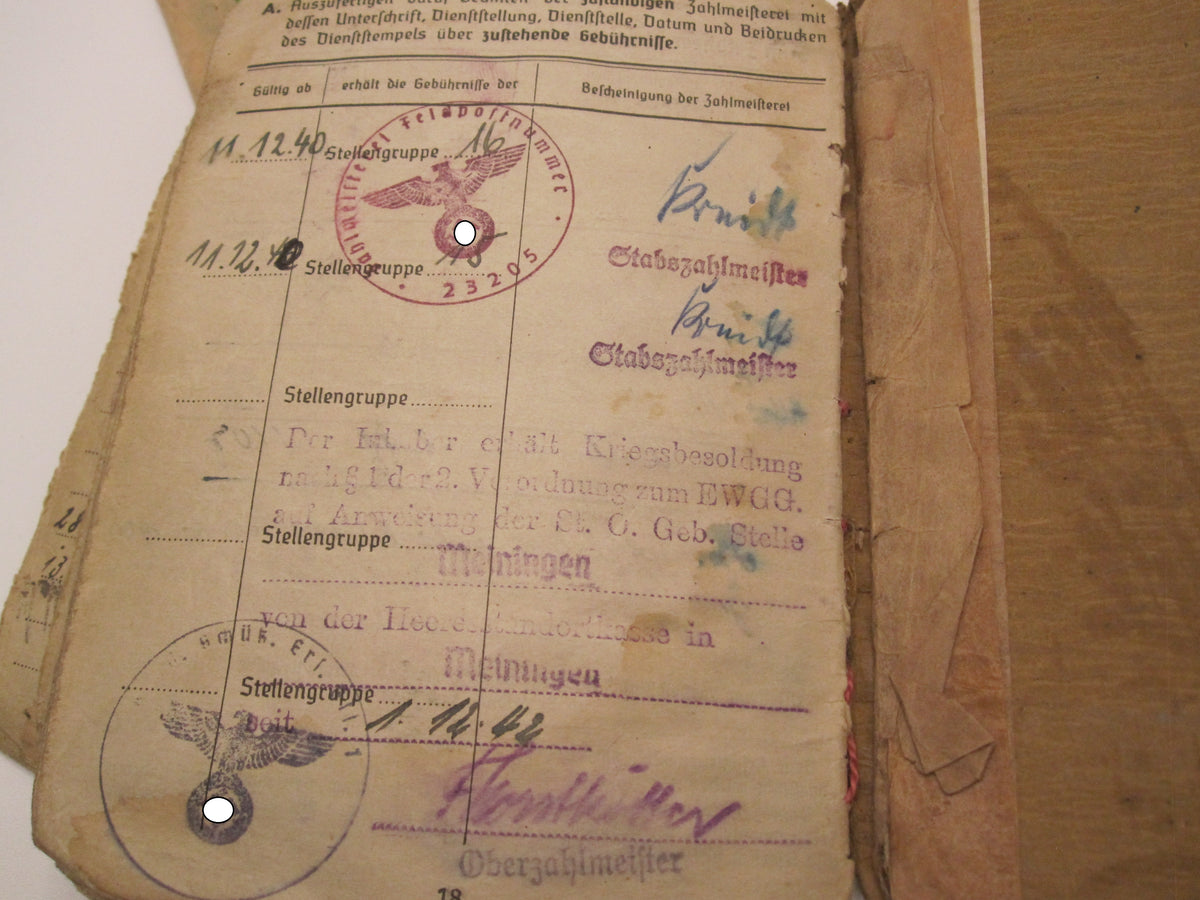 A. Auszufertigen durch Beamten der zuständigen Zahlmeisterei mit
dessen Unterschrift, Dienststellung, Dienststelle, Datum und Beidrucken
des Dienststempels über zustehende Gebührnisse.
Gültig ab erhält die Gebührnisse der Bescheinigung der Zahlmeisterei
Zahlmeisterei Feldpostnummer
23205
11.12.40 Stellengruppe 16
Stabszahlmeister
11.12.40 Stellengruppe 15
Stabszahlmeister
Stellengruppe
Der Inhaber erhält Kriegsbesoldung
nach § 1 der 2. Verordnung zum EWGG.
auf Anweisung der St. O. Geb. Stelle
Stellengruppe
Meiningen
von der Heeresstandortkasse in
Meiningen
Stellengruppe
seit 1. 12. 42
Oberzahlmeister
18
28
13